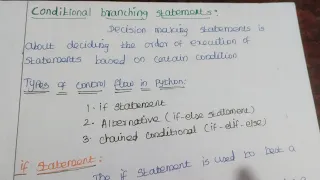 Conditional branching statement:-
Decision making statements is
about deciding the order of execution of
statements based on certain condition
Types of control flow in Python:
1. if statement
2. Alternative (if-else statement)
3. chained conditional (if-elif-else)
if statement:
The if statement is used to test a